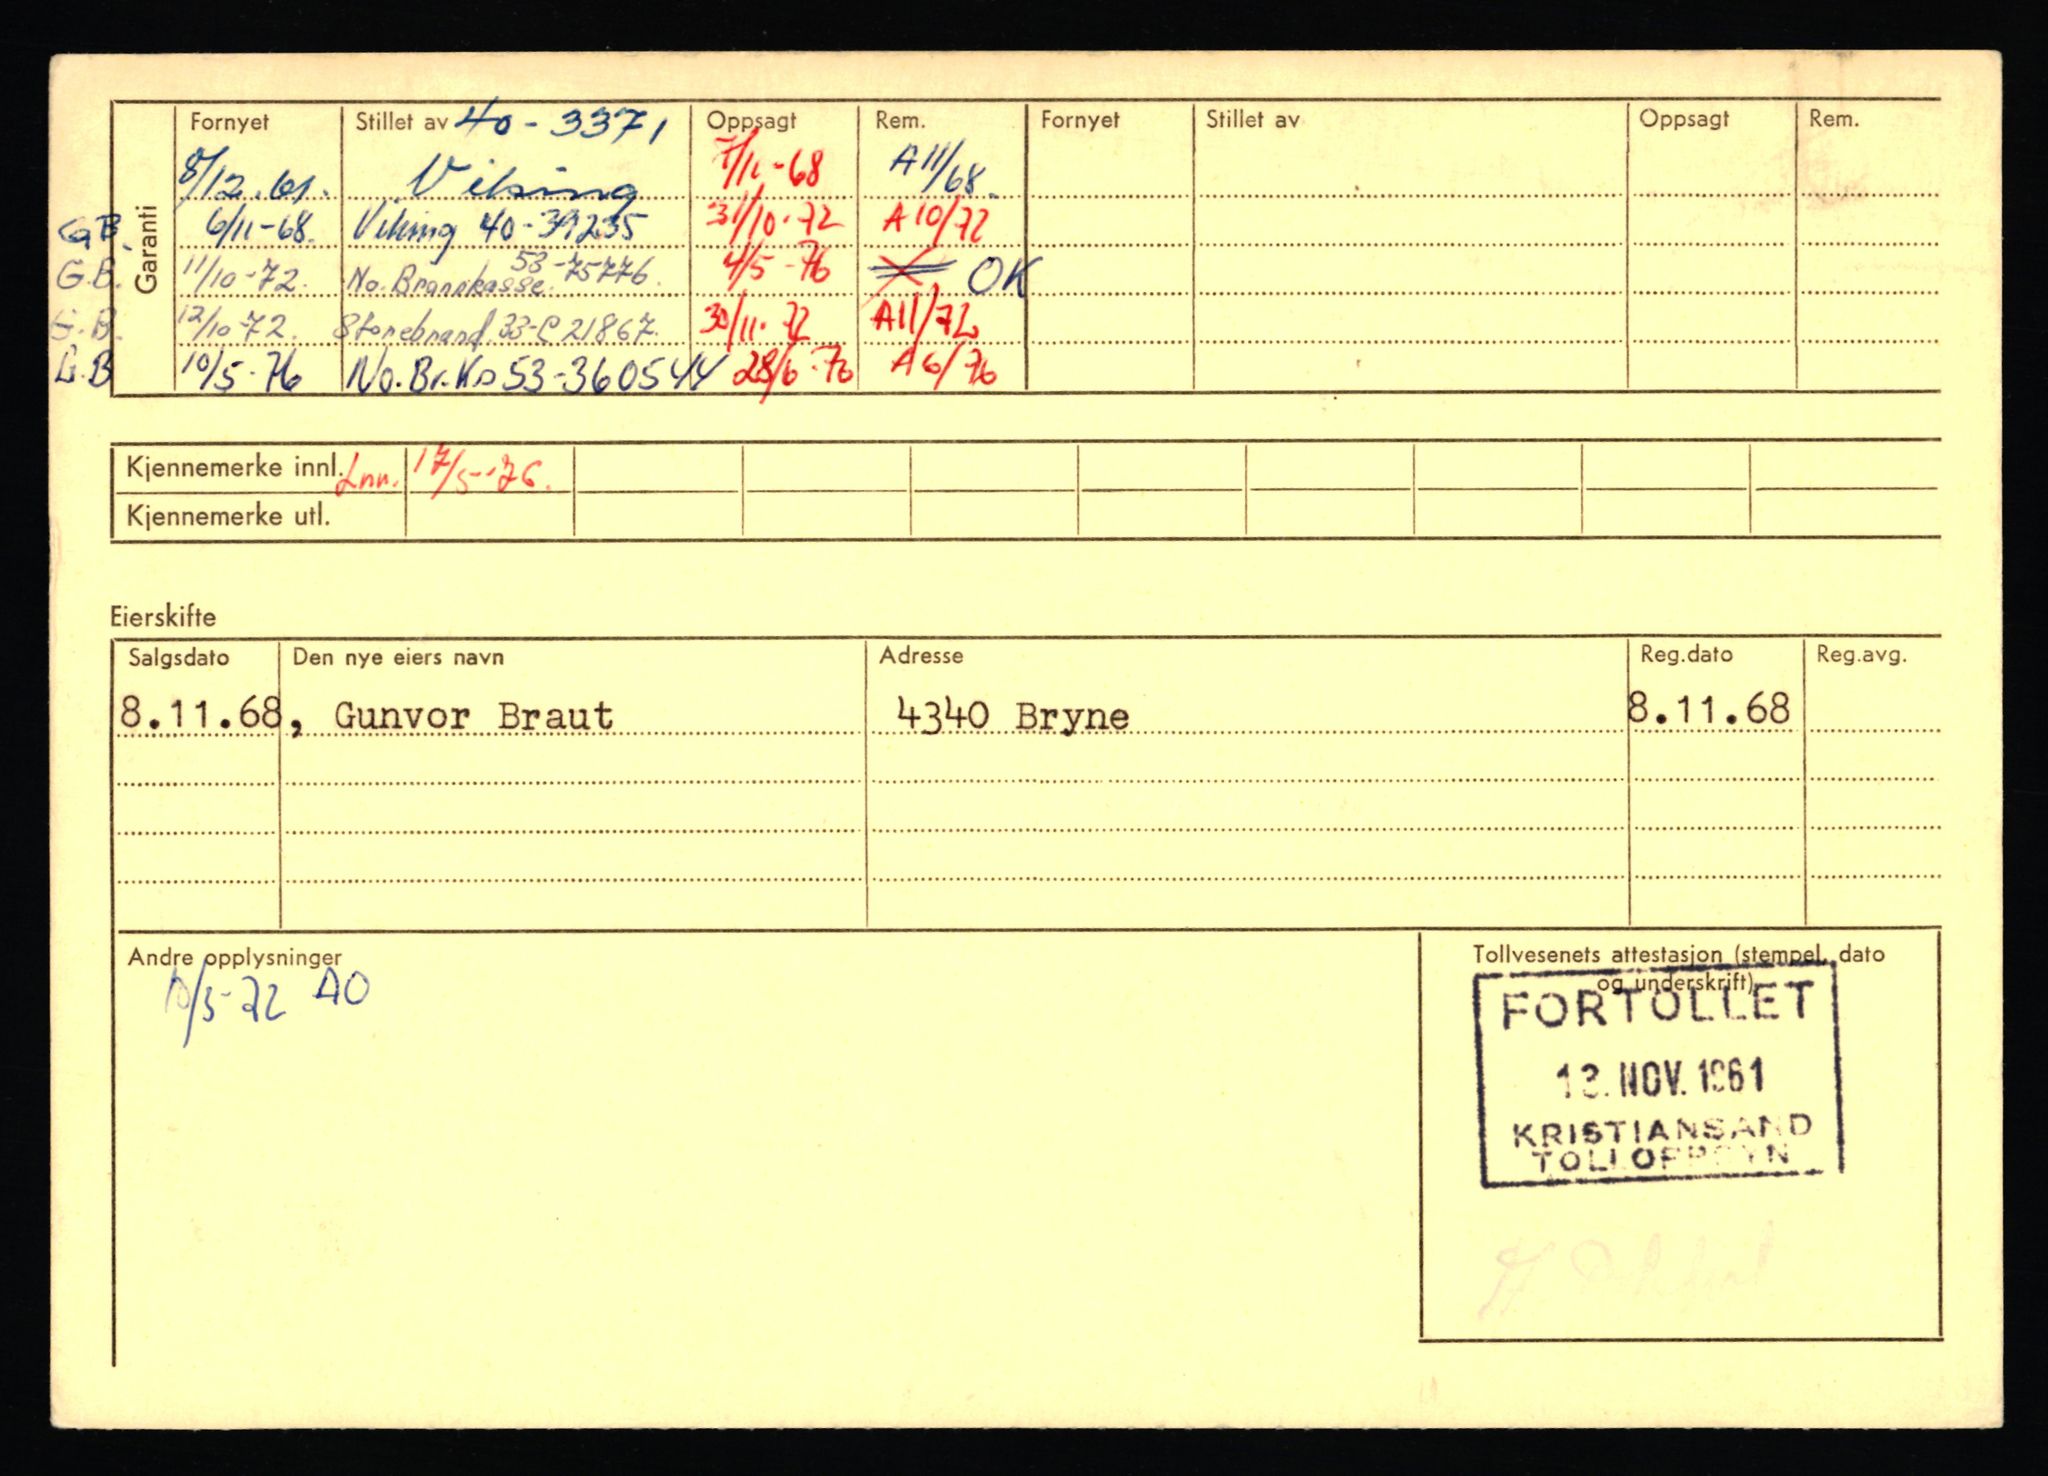 Garanti
Fornyet Stillet av 40-3371 Oppsagt Rem. Fornyet Stillet av Oppsagt Rem.
8/12.61. Viking 7/11-68 A 11/68.
G.B. 6/11-68. Viking 40-39235 31/10-72 A 10/72
G.B. 11/10-72. No. Brannkasse. 53-75776. 4/5-76 OK
G.B. 12/10-72. Storebrand. 33-C 21867. 30/11-72 A 11/72
G.B 10/5-76 No.Br.Ks 53-360544 28/6-76 A 6/76
Kjennemerke innl. Inn. 17/5-76.
Kjennemerke utl.
Eierskifte
Salgsdato Den nye eiers navn Adresse Reg.dato Reg.avg.
8.11.68, Gunvor Braut 4340 Bryne 8.11.68
Andre opplysninger
10/5-72 AO
Tollvesenets attestasjon (stempel, dato
og underskrift)
FORTOLLET
13. NOV. 1961
KRISTIANSAND
TOLLOPPSYN